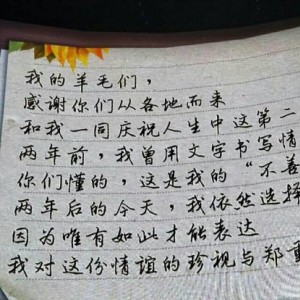 我的羊毛们，
感谢你们从各地而来
和我一同庆祝人生中这第二
两年前，我曾用文字书写情
你们懂的，这是我的“不善
两年后的今天，我依然选择
因为唯有如此才能表达
我对这份情谊的珍视与郑重